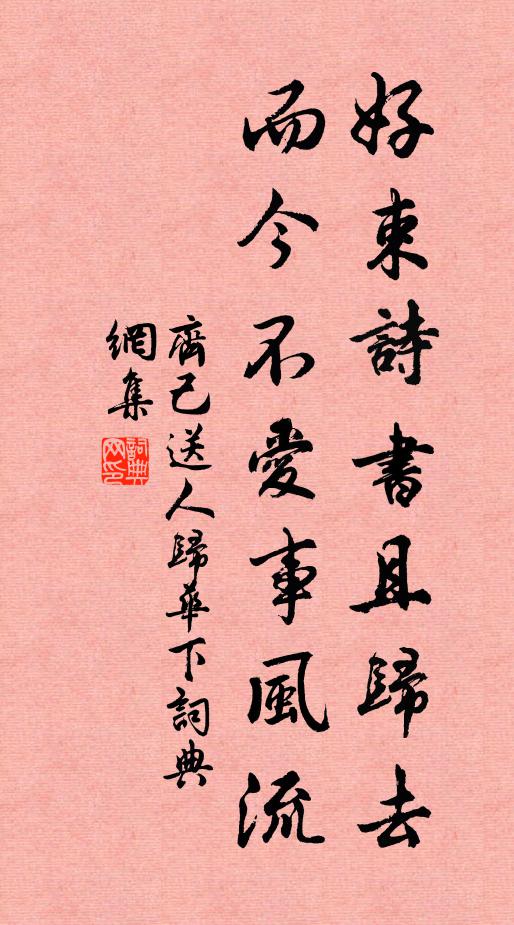 好束詩書且歸去
而今不愛事風流
齊己送人歸華下詞典
網集
詞典網印